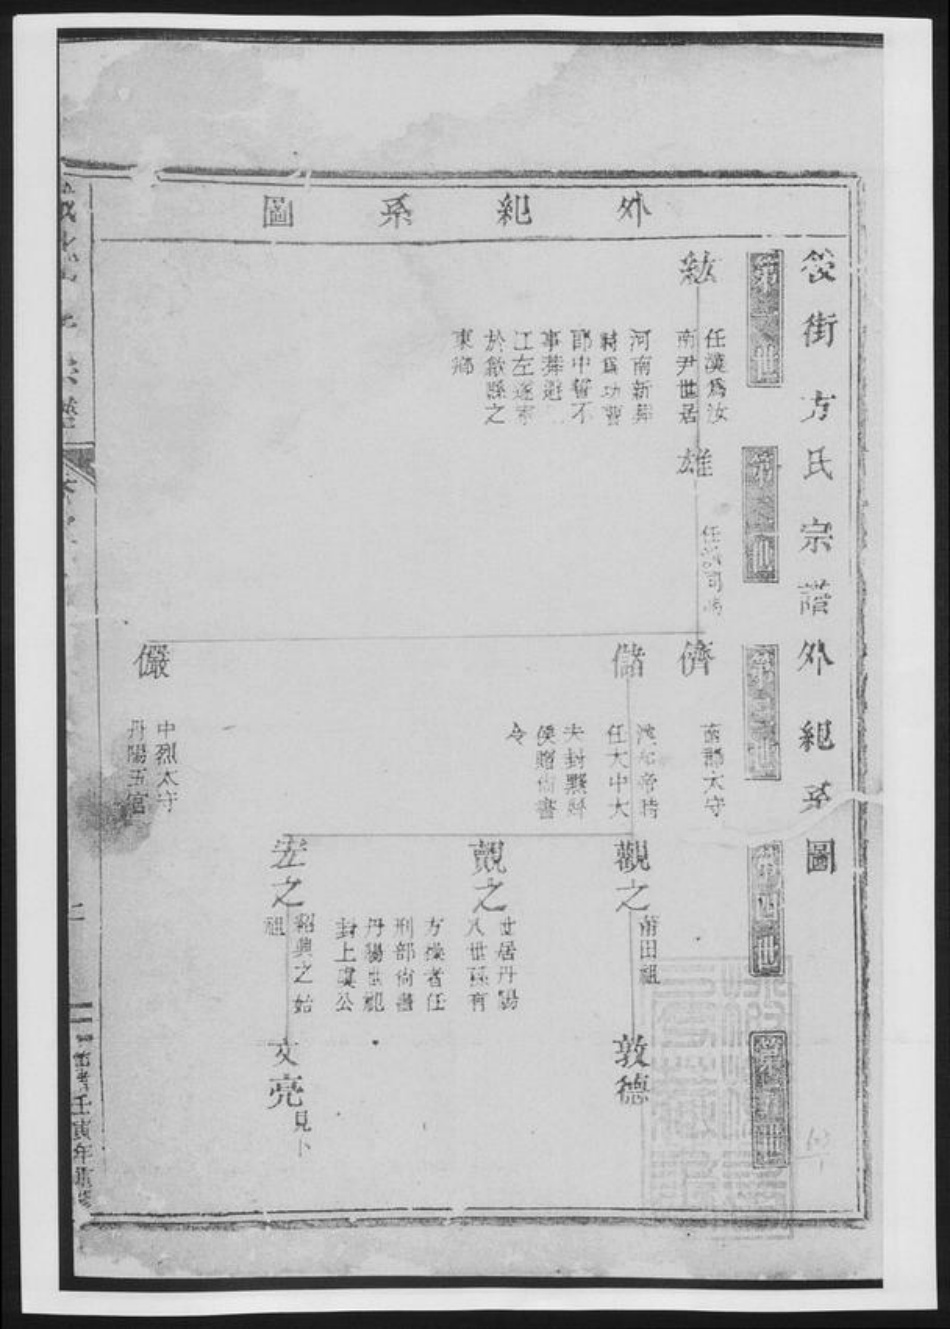 外紀系圖
後街方氏宗譜外紀系圖
第一世
紘
任漢爲汝
南尹世居
河南新莽
時爲功曹
郎中誓不
事莽避
江左遂家
於歙縣之
東鄉
第二世
雄
任
司馬
第三世
儕
南郡太守
儲
漢和帝時
任大中大
夫封黟縣
侯贈尚書
令
儼
中烈太守
丹陽五官
第四世
觀之
莆田祖
覿之
世居丹陽
八世孫有
方操者任
刑部尚書
丹陽世祀
封上虞公
宏之
紹興之始
祖
第五世
敦德
文亮
見卜
光緒壬寅年重修